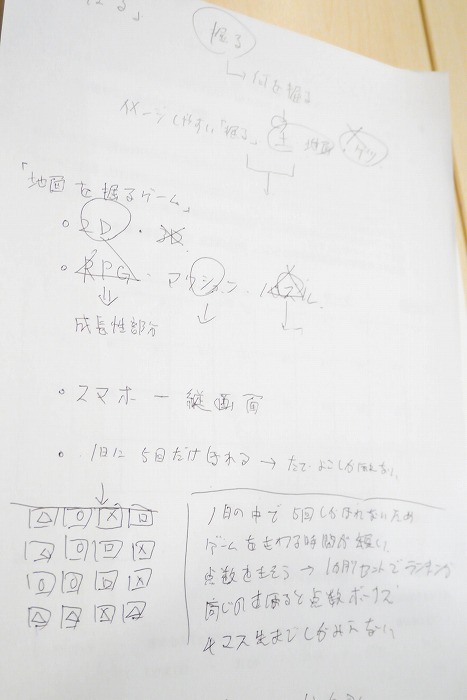 掘る
何を掘る
イメージしやすい「掘る」 土 地面
「地面を掘るゲーム」
・2D ・ 3D
・RPG・アクション・パズル
成長性部分
・スマホ ー 縦画面
・1日に5回だけほれる → たて、よこしか掘れない
△ ○ × □
1日の中で5回しかほれないため
ゲームをさわる時間が短い
点数をきそう → 1カ月セットでランキング
同じのをほると点数ボーナス
4マス先までしかみえない